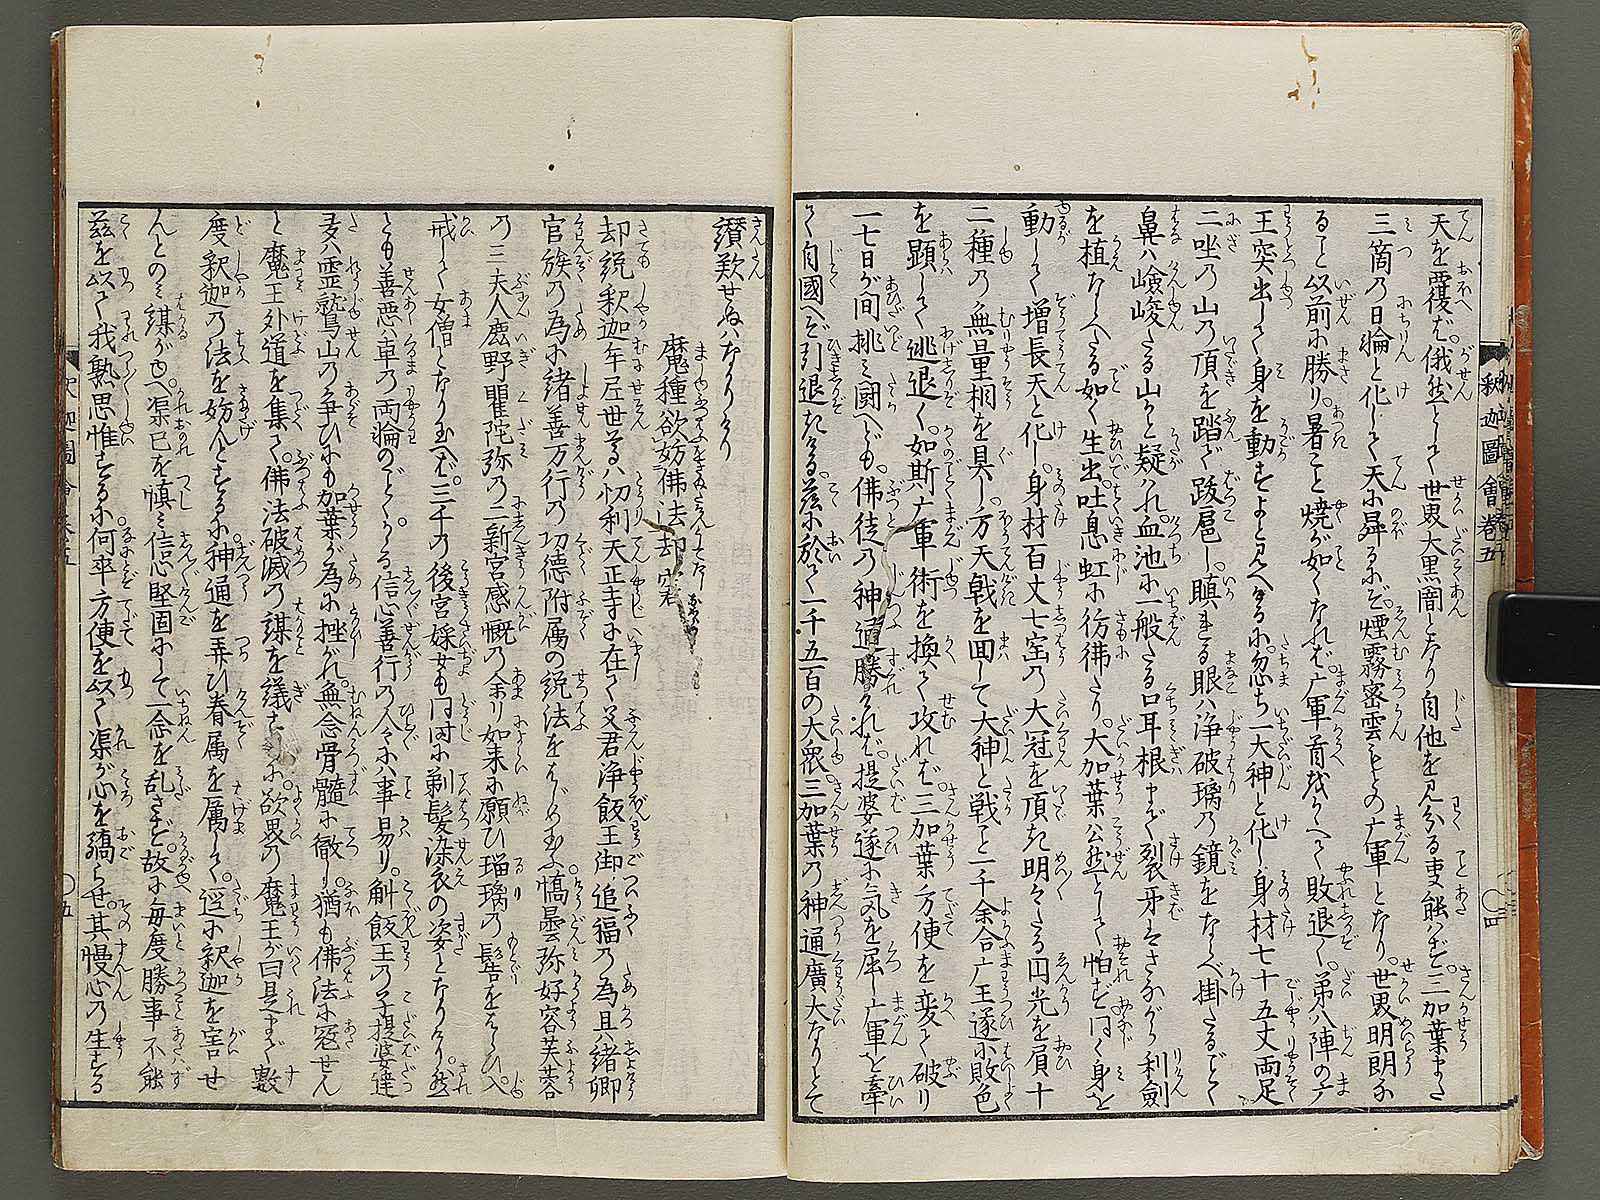 天を覆へば。俄然として世界大黒闇となり自他を見分る事能はず。三加葉また
三箇乃日輪と化して天に昇るにぞ。煙霧密雲もとの亡軍となり。世界明朗に
ること以前に勝り。暑こと焼が如くなれば亡軍首をかゝへて敗退く。第八陣の
王突出して身を動すよと見へるに。忽ち一大神と化し身材七十五丈両足
二坐の山乃頂を踏で跋扈し。瞋れる眼ハ浄破璃乃鏡をならべ掛たるごとく
鼻ハ嶮峻たる山かと疑はれ。血池に一般たる口耳根まで裂牙ハさながら利劍
を植ならべたる如く生出。吐息虹に彷彿たり。大加葉公然として怕ず同く身を
動して増長天と化し。身材百丈七宝乃大冠を頂き明々たる円光を肩十
二種乃無量相を具し。方天戟を回して大神と戦こと一千余合亡王遂に敗色
を顕して逃退く。如斯亡軍術を換て攻れば。三加葉方便を変て破り
一七日が間挑ミ闘へども。佛徒乃神通勝ければ。提婆遂に気を屈し亡軍を牽
て自國へぞ引退きける。茲に於て一千五百の大衆三加葉乃神通廣大なりとて
釈迦圖會巻五
〇四
讃歎せぬハなかりけり
魔種欲妨佛法却害
却説釈迦牟尼世尊ハ、忉利天正寺に在て父君浄飯王御追福乃為且諸卿
官族乃為に諸善万行乃功徳附属の説法をはじめ玉ふ。憍曇弥好容芙蓉
乃三夫人鹿野瞿陀弥乃二新宮感慨乃余り如来に願ひ瑠璃乃髻をはらひ。八
戒して女僧となり玉へば。三千乃後宮婇女も同時に剃髪染衣の姿となりけり。然
とも善悪ハ車乃両輪のごとくなる。信心善行乃人々ハ事易り。斛飯王乃子提婆達
多ハ霊鷲山乃争ひにも加葉が為に挫がれ。無念骨髄に徹し。猶も佛法に冦せん
と魔王外道を集て。佛法破滅乃謀を議すに。欲界乃魔王が曰是まで数
度釈迦乃法を妨んとするに神通を弄ひ眷属を属して。逕に釈迦を害せ
んとのミ謀がゆへ。渠己を慎ミ信心堅固にして一念を乱さず。故に毎度勝事不能
茲を以て我熟思惟するに何卒方便を以て渠が心を驕らせ。其慢心乃生ずる
釈迦圖會巻五
〇五